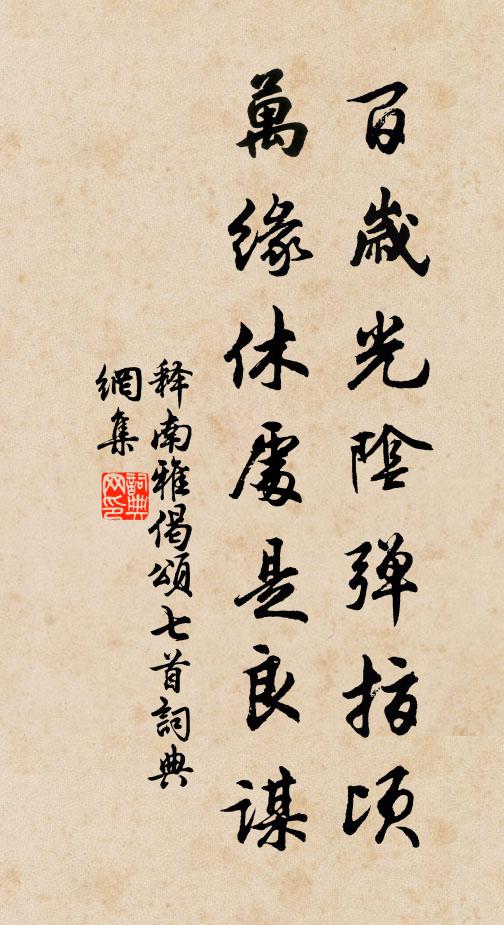 百歲光陰彈指頃
萬緣休處是良謀
释南雅偈頌七首詞典
網集
詞典
网印